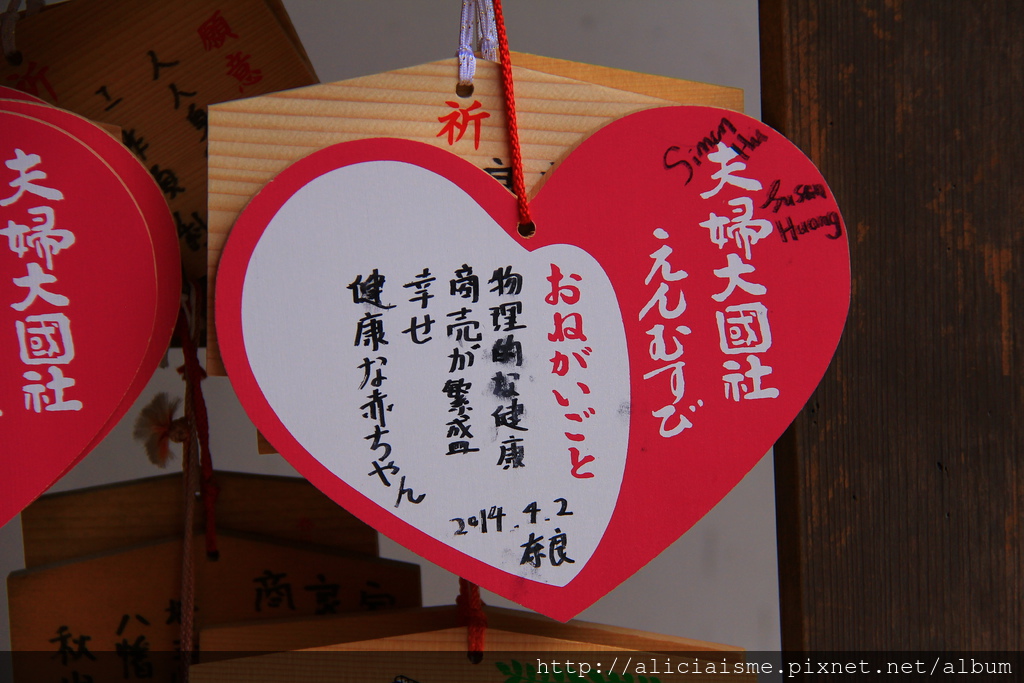 祈
Simon
Hu
Susan
Huang
夫婦大國社
えんむすび
おねがいごと
物理的な健康
商売が繁盛
幸せ
健康な赤ちゃん
2014.4.2
奈良
夫婦大國社
願意
祈
八幡
秋
http://aliciaisme.pixnet.net/album